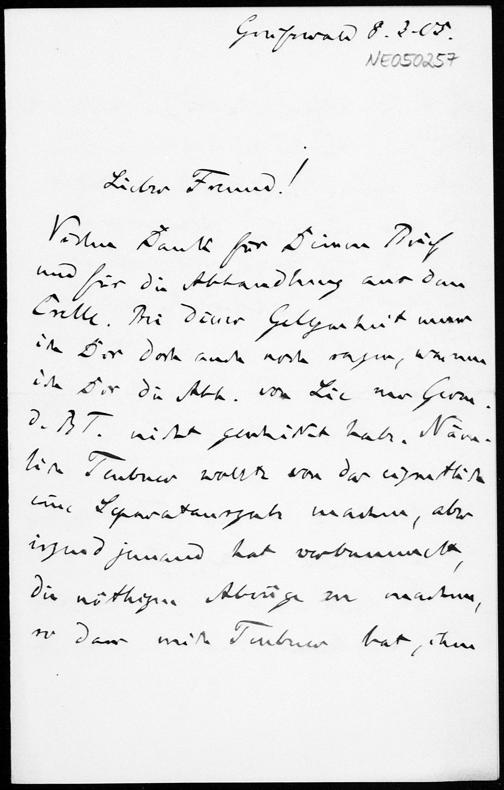 Greifswald 8. 2. 05.
NE050257
Lieber Freund!
Vielen Dank für Deinen Brief
und für die Abhandlung aus dem
Crelle. Bei dieser Gelegenheit muss
ich Dir doch auch noch sagen, warum
ich Dir die Abh. von Lie zur Geom.
d. BT. nicht geschickt habe. Näm-
lich Teubner wollte von der eigentlich
eine Separatausgabe machen, aber
irgend jemand hat verbummelt,
die nöthigen Abzüge zu machen,
so dass mich Teubner bat, ihm